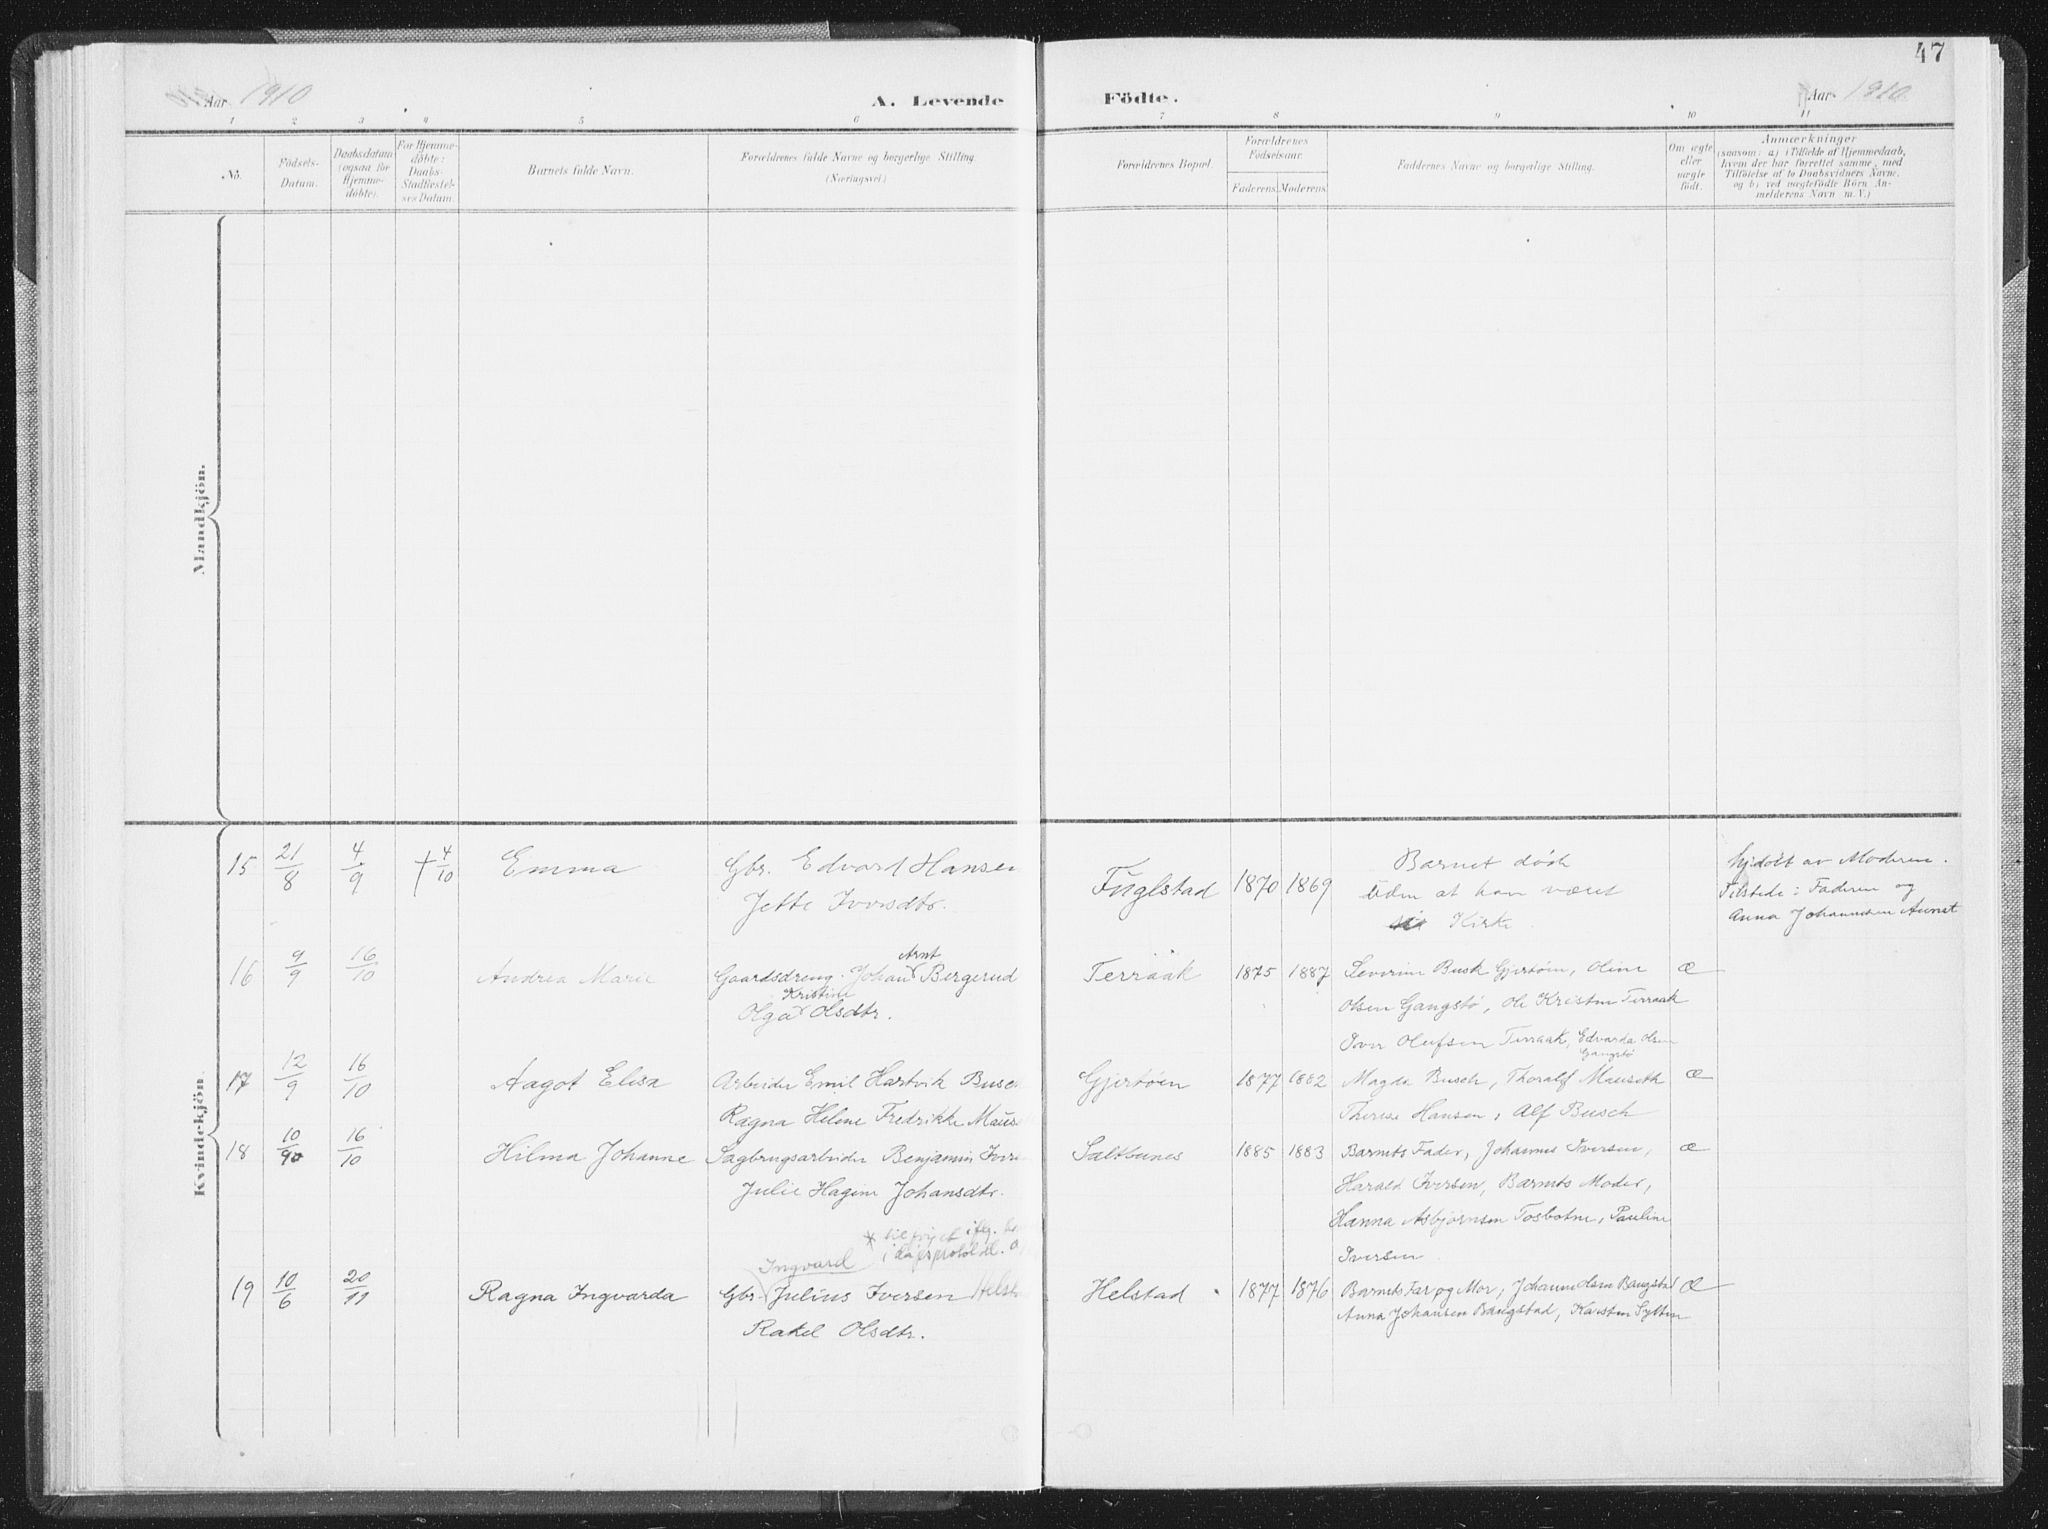 47
Aar 1910
A. Levende Födte.
Aar 1910.
1 2 3 4 5 6 7 8 9 10 11
No.
Födsels-
Datum.
Daabsdatum
(ogsaa for
Hjemme-
döbte).
For Hjemme-
döbte:
Daabs-
Stadfæstel-
ses Datum.
Barnets fulde Navn.
Forældrenes fulde Navne og borgerlige Stilling.
(Næringsvei.)
Forældrenes Bopæl.
Forældrenes
Födselsaar.
Faderens. Moderens.
Faddernes Navne og borgerlige Stilling.
Om ægte
eller
uægte
födt.
Anmærkninger
(saasom: a) i Tilfælde af Hjemmedaab,
hvem der har forrettet samme, med
Tilföielse af to Daabsvidners Navne,
og b) ved uægtefödte Börn An-
melderens Navn m.V.)
Mandkjön.
Kvindekjön.
15 21/8 4/9 † 4/10 Emma
Gbr. Edvard Hansen
Jette Iversdtr.
Fuglstad 1870 1869
Barnet døde
uden at han været
i Kirke
Hjdøbt av Moderen.
Tilstede: Faderen og
Anna Johannesen Aunet
16 9/9 16/10 Andrea Marie
Arnt
Gaardsdreng Johan Bergerud
Kristine
Olga Olsdtr.
Terraak 1875 1887
Severin Busk Gjertøen, Oline
Olsen Gangstø, Ole Kristen Terraak
Iver Olufsen Terraak, Edvarda Olsen
Gangstø
Æ
17 12/9 16/10 Aagot Elisa
Arbeider Emil Hartvik Busc
Ragna Helene Fredrikke Maus
Gjertøen 1877 1882
Magda Busch, Thoralf Mauseth
Therese Hansen, Alf Busch
Æ
18 10/9 16/10 Hilma Johanne
Sagbrugsarbeider Benjamin Iver
Julie Hagine Johansdtr.
Saltbunes 1885 1883
Barnets Fader, Johannes Iversen,
Harald Iversen, Barnets Moder,
Hanna Asbjørnsen Tosbotne, Pauline
Iversen
Æ
* tilføiet iflg.
Ingvard
19 10/6 20/11 Ragna Ingvarda
Gbr. Julius Iversen Helst
Rakel Olsdtr.
Helstad 1877 1876
Barnets Far og Mor, Johanne Olsen Bangstad
Anna Johansen Bangstad, Karsten Sylten
Æ